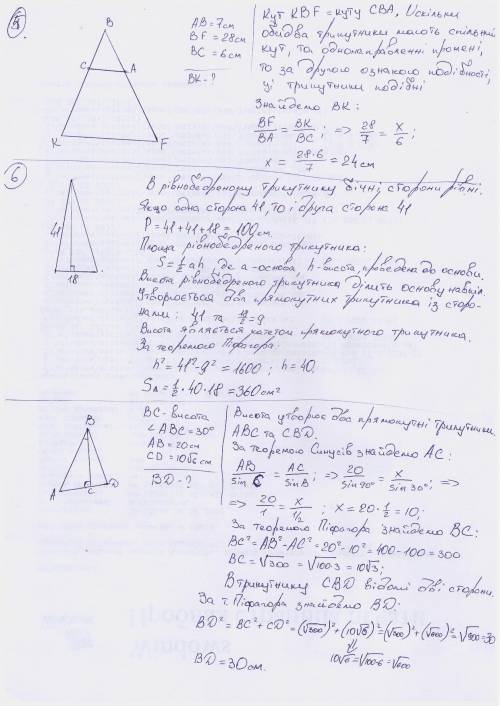 5
B
C
A
K
F
AB = 7см
BF = 28см
BC = 6см
BK - ?
Кут KBF = куту CBA. Оскільки
обидва трикутники мають спільний
кут, та однонаправленні промені,
то за другою ознакою подібності,
ці трикутники подібні
Знайдемо BK:
BF/BA = BK/BC; => 28/7 = x/6;
x = 28·6/7 = 24см
6
41
18
В рівнобедреному трикутнику бічні сторони рівні.
Якщо одна сторона 41, то і друга сторона 41
P = 41+41+18 = 100см.
Площа рівнобедреного трикутника:
S = 1/2 ah, де a-основа, h-висота, проведена до основи.
Висота рівнобедреного трикутника ділить основу навпіл.
Утворюється два прямокутних трикутника із сторо-
нами: 41 та 18/2 = 9
Висота являється катетом прямокутного трикутника.
За теоремою Піфагора:
h² = 41² - 9² = 1600; h = 40.
S△ = 1/2 · 40 · 18 = 360см²
B
A
C
D
BC - висота
∠ABC = 30°
AB = 20см
CD = 10√6 см
BD - ?
Висота утворює два прямокутні трикутники
ABC та CBD.
За теоремою Синусів знайдемо AC:
AB/sin C = AC/sin B; => 20/sin 90° = x/sin 30°; =>
=> 20/1 = x/½; x = 20·½ = 10;
За теоремою Піфагора знайдемо BC:
BC² = AB² - AC² = 20² - 10² = 400 - 100 = 300
BC = √300 = √100·3 = 10√3;
В трикутнику CBD відомі дві сторони.
За т. Піфагора знайдемо BD:
BD² = BC² + CD² = (√300)² + (10√6)² = (√300)² + (√600)² = √900 = 30
10√6 = √100·6 = √600
BD = 30см.
Windows